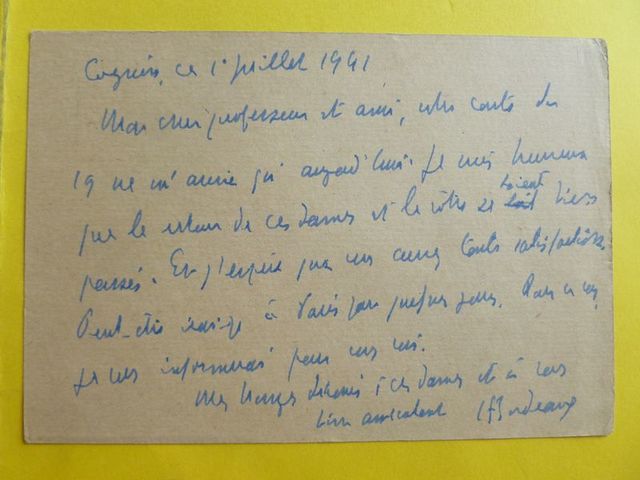 Cognin, ce 1er juillet 1941
Mon cher professeur et ami, votre carte du
19 ne m'arrive qu'aujourd'hui. Je suis heureux
que le retour de ces dames et le vôtre se soient bien
passés. Et j'espère que vous aurez toute satisfaction
Peut-être irai-je à Paris dans quelques jours. Dans ce cas,
je vous informerai pour vous voir.
Mes hommages dévoués à ces dames et à vous
bien amicalement Bordeaux